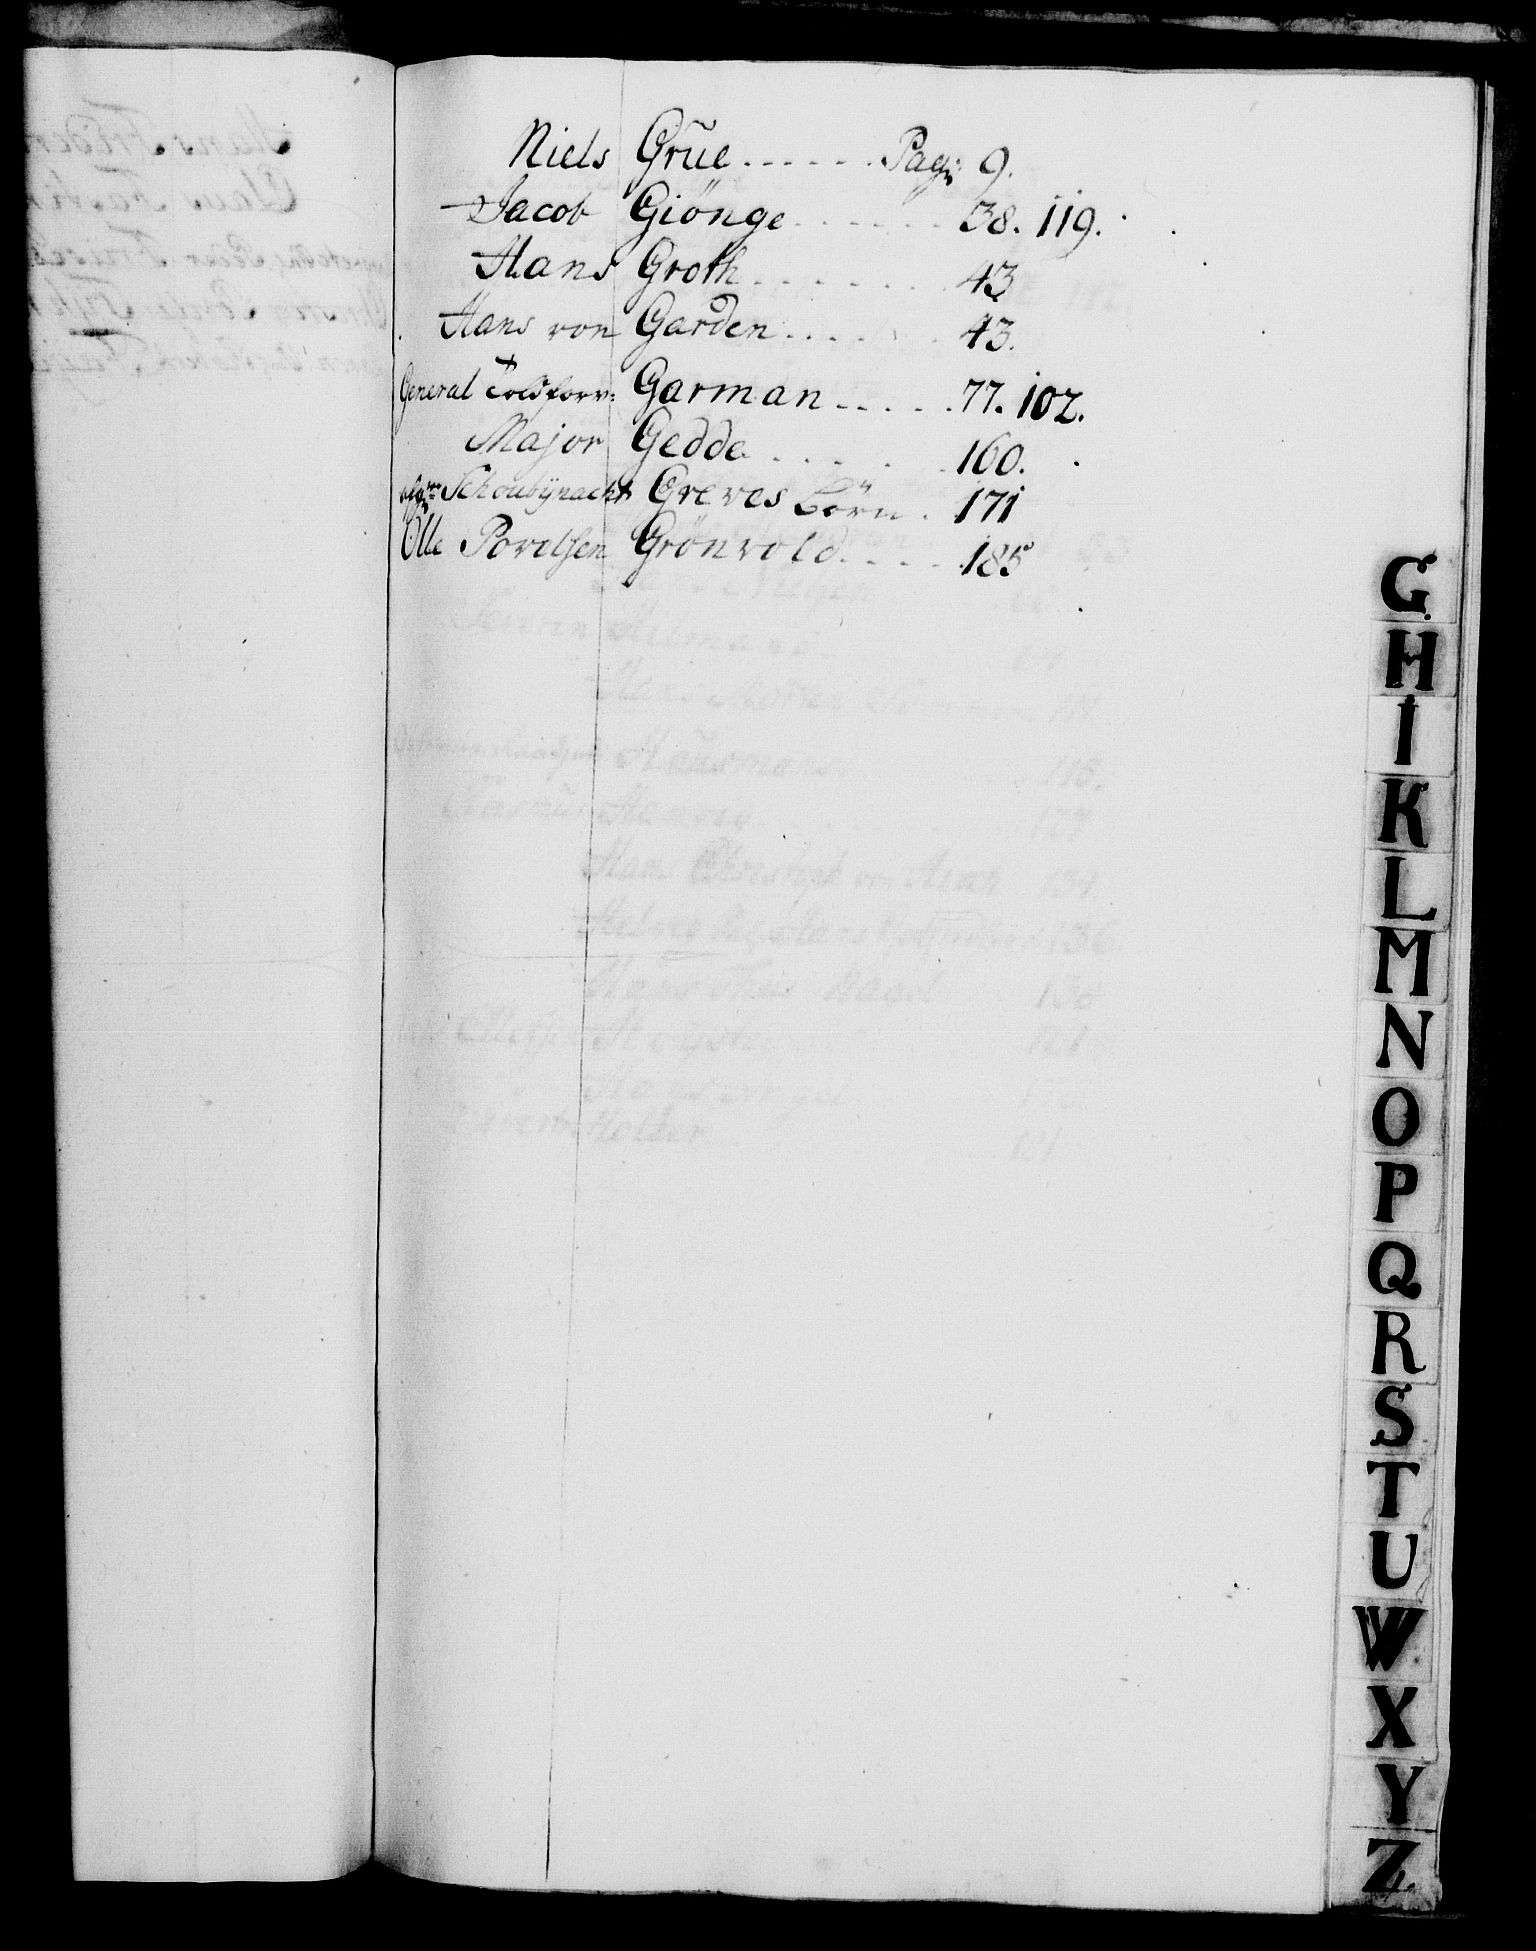 Niels Grüe . . . . . . Pag: 9.
Jacob Giönge . . . . . . 38. 119.
Hans Groth . . . . . . . . 43
Hans von Garden . . . . 43.
General Toldforv: Garman . . . . . 77. 102.
Major Gedde . . . . . . 160.
Schoubÿnacht Greves Börn . 171
Olle Povelsen Grönvold . . . . . 185
G
H
I
K
L
M
N
O
P
Q
R
S
T
U
W
X
Y
Z